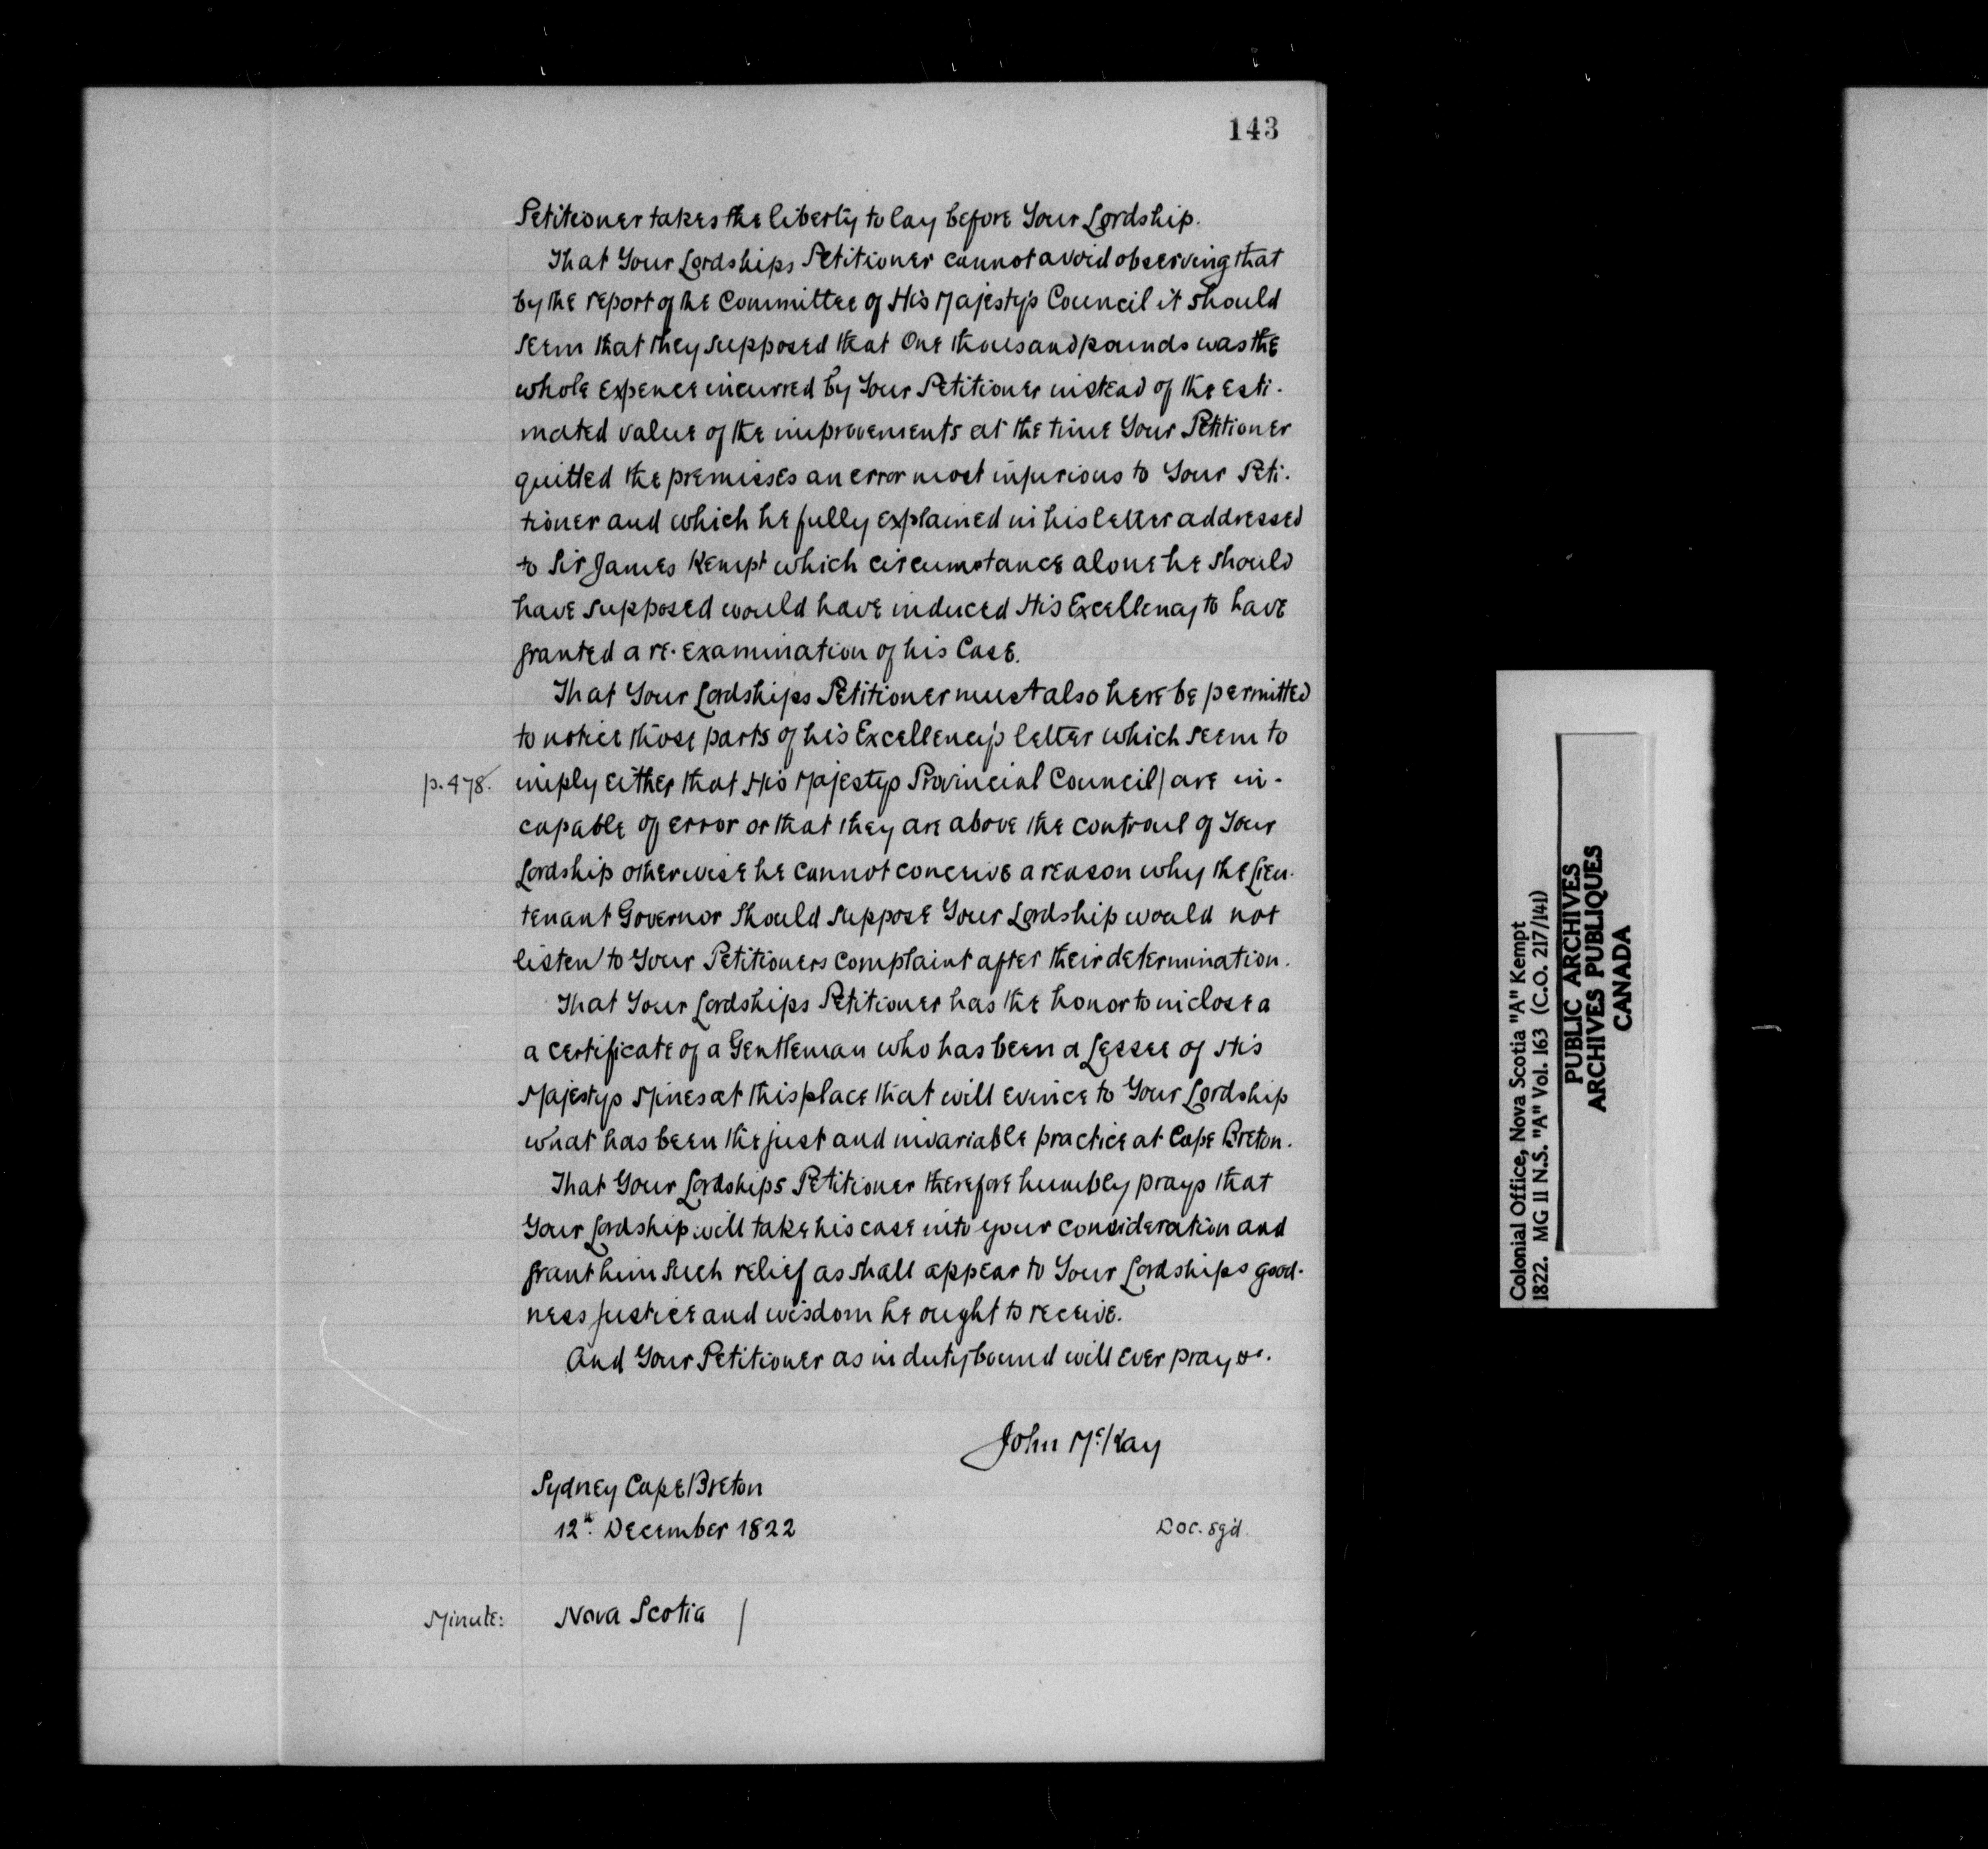 143
Petitioner takes the liberty to lay before Your Lordship.
That Your Lordships Petitioner cannot avoid observing that
by the report of the Committee of His Majesty's Council it should
seem that they supposed that One thousand pounds was the
whole expence incurred by Your Petitioner instead of the esti-
mated value of the improvements at the time Your Petitioner
quitted the premisses an error most injurious to Your Peti-
tioner and which he fully explained in his letter addressed
to Sir James Kempt which circumstance alone he should
have supposed would have induced His Excellency to have
granted a re-examination of his Case.
That Your Lordships Petitioner must also here be permitted
to notice those parts of his Excellency's letter which seem to
p. 478. imply either that His Majestys Provincial Council/ are in-
capable of error or that they are above the controul of Your
Lordship otherwise he cannot conceive a reason why the Lieu-
tenant Governor should suppose Your Lordship would not
listen to Your Petitioners complaint after their determination.
That Your Lordships Petitioner has the honor to inclose a
a certificate of a Gentleman who has been a Lessee of His
Majestys Mines at this place that will evince to Your Lordship
what has been the just and invariable practice at Cape Breton.
That Your Lordships Petitioner therefore humbly prays that
Your Lordship will take his case into your consideration and
grant him such relief as shall appear to Your Lordships good-
ness justice and wisdom he ought to receive.
And Your Petitioner as in duty bound will ever pray &c.
John McKay
Sydney Cape Breton
12th December 1822
Doc. sg'd.
Minute: Nova Scotia /
Colonial Office, Nova Scotia "A" Kempt
1822. MG 11 N.S. "A" Vol. 163 (C.O. 217/141)
PUBLIC ARCHIVES
ARCHIVES PUBLIQUES
CANADA